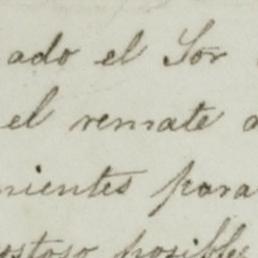 ado el Sor
el remate a
nientes para
ostoso posibles